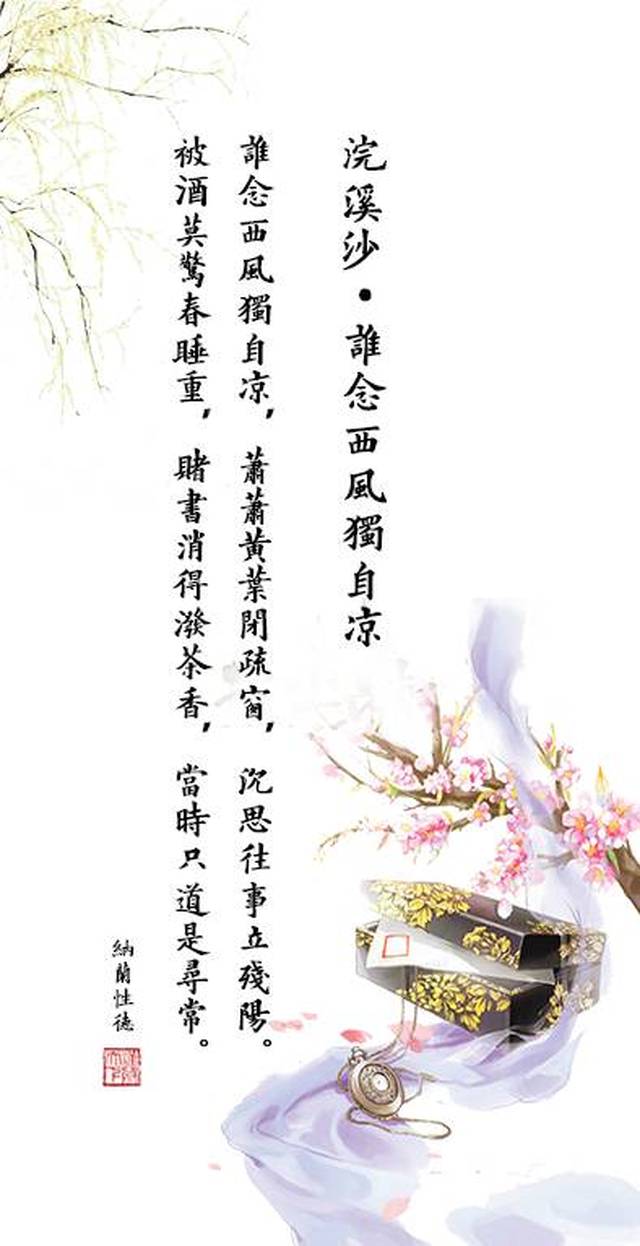 浣溪沙·誰念西風獨自凉
誰念西風獨自凉，蕭蕭黃葉閉疏窗，沉思往事立殘陽。
被酒莫驚春睡重，賭書消得潑茶香，當時只道是尋常。
納蘭性德